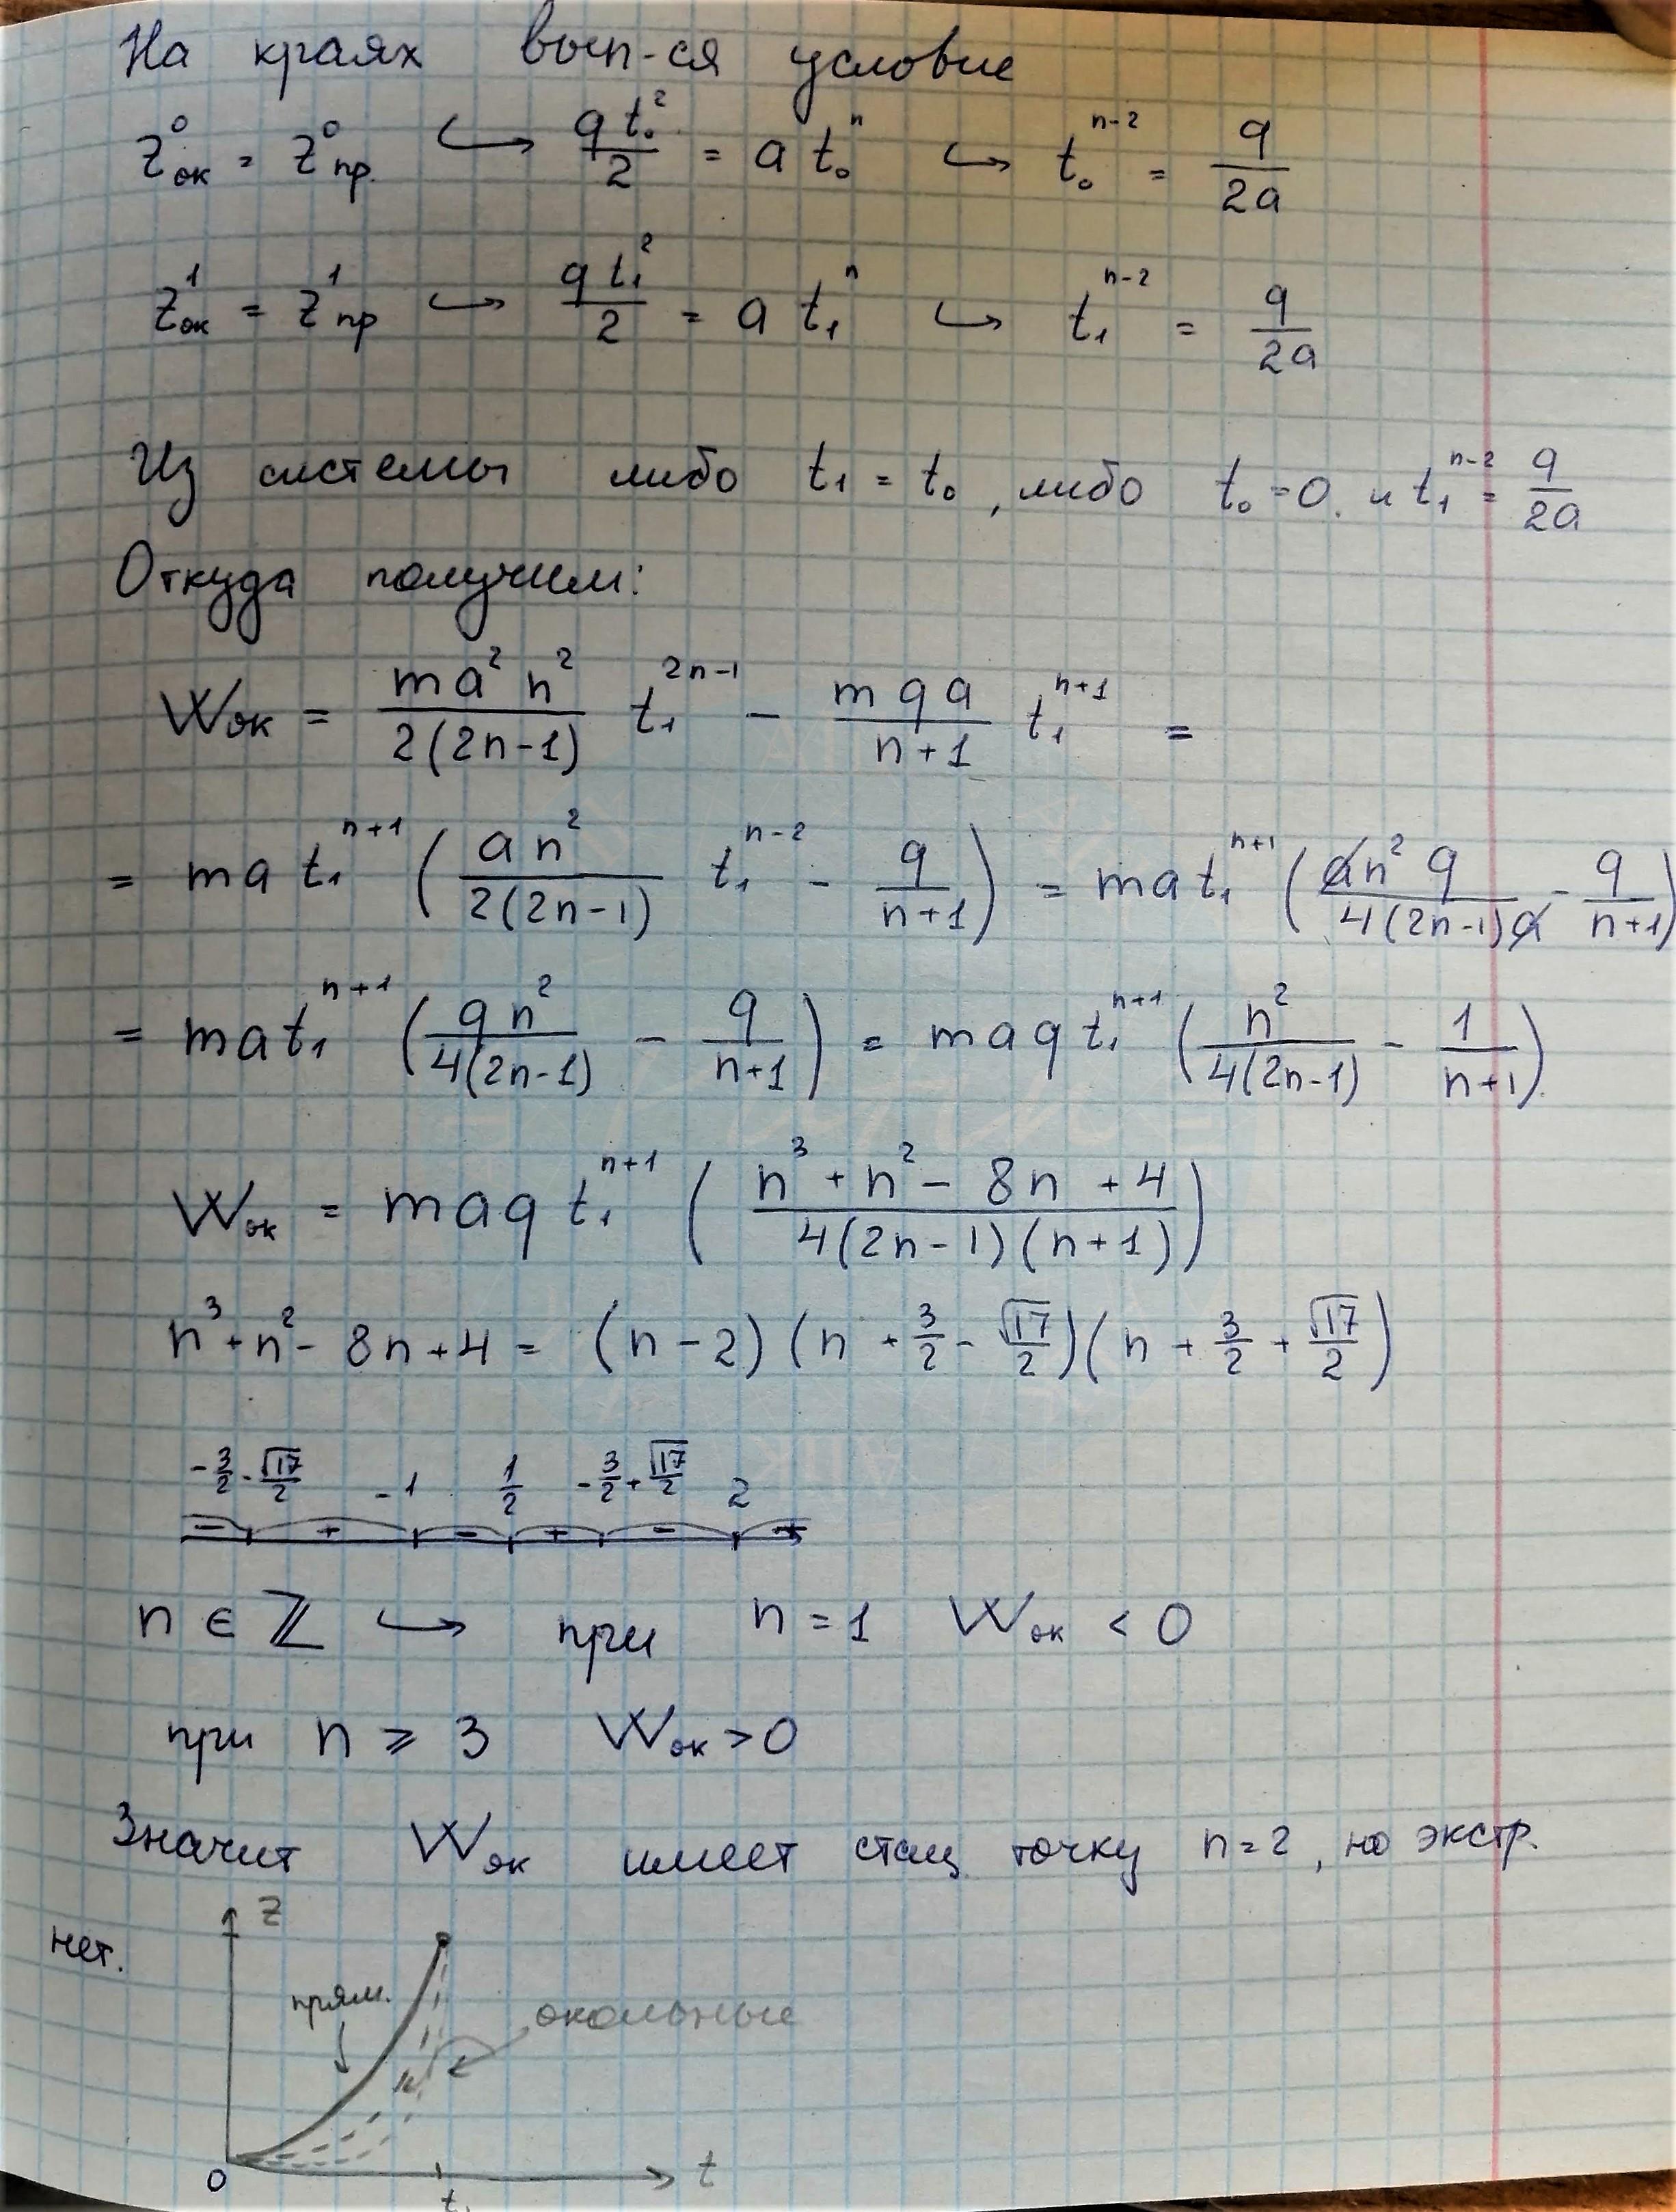 На краях вып-ся условие
z⁰ок = z⁰пр. ↪ qt₀²/2 = a t₀ⁿ ↪ t₀ⁿ⁻² = q/2a
z¹ок = z¹пр ↪ qt₁²/2 = a t₁ⁿ ↪ t₁ⁿ⁻² = q/2a
Из системы либо t₁ = t₀, либо t₀ = 0. и t₁ⁿ⁻² = q/2a
Откуда получим:
Wок = ma²n²/2(2n-1) t₁²ⁿ⁻¹ - mqa/n+1 t₁ⁿ⁺¹ =
= mat₁ⁿ⁺¹ (an²/2(2n-1) t₁ⁿ⁻² - q/n+1) = mat₁ⁿ⁺¹ (an²q/4(2n-1)a - q/n+1)
= mat₁ⁿ⁺¹ (qn²/4(2n-1) - q/n+1) = maqt₁ⁿ⁺¹ (n²/4(2n-1) - 1/n+1).
Wок = maqt₁ⁿ⁺¹ (n³ + n² - 8n + 4/4(2n-1)(n+1))
n³ + n² - 8n + 4 = (n-2)(n + 3/2 - √17/2)(n + 3/2 + √17/2)
-3/2 - √17/2 -1 1/2 -3/2 + √17/2 2
- + - + - +
n ∈ ℤ ↪ при n = 1 Wок < 0
при n ⩾ 3 Wок > 0
Значит Wок имеет стац. точку n = 2, но экстр.
нет.
z
прям.
окольные
0
t₁
t